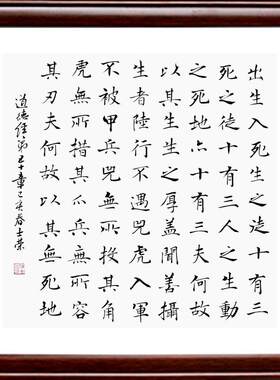 出生入死生之徒十有三
死之徒十有三人之生動
之死地亦十有三夫何故
以其生生之厚蓋聞善攝
生者陸行不遇兕虎入軍
不被甲兵兕無所投其角
虎無所措其爪兵無所容
其刃夫何故以其無死地
道德经第五十章己亥春士荣